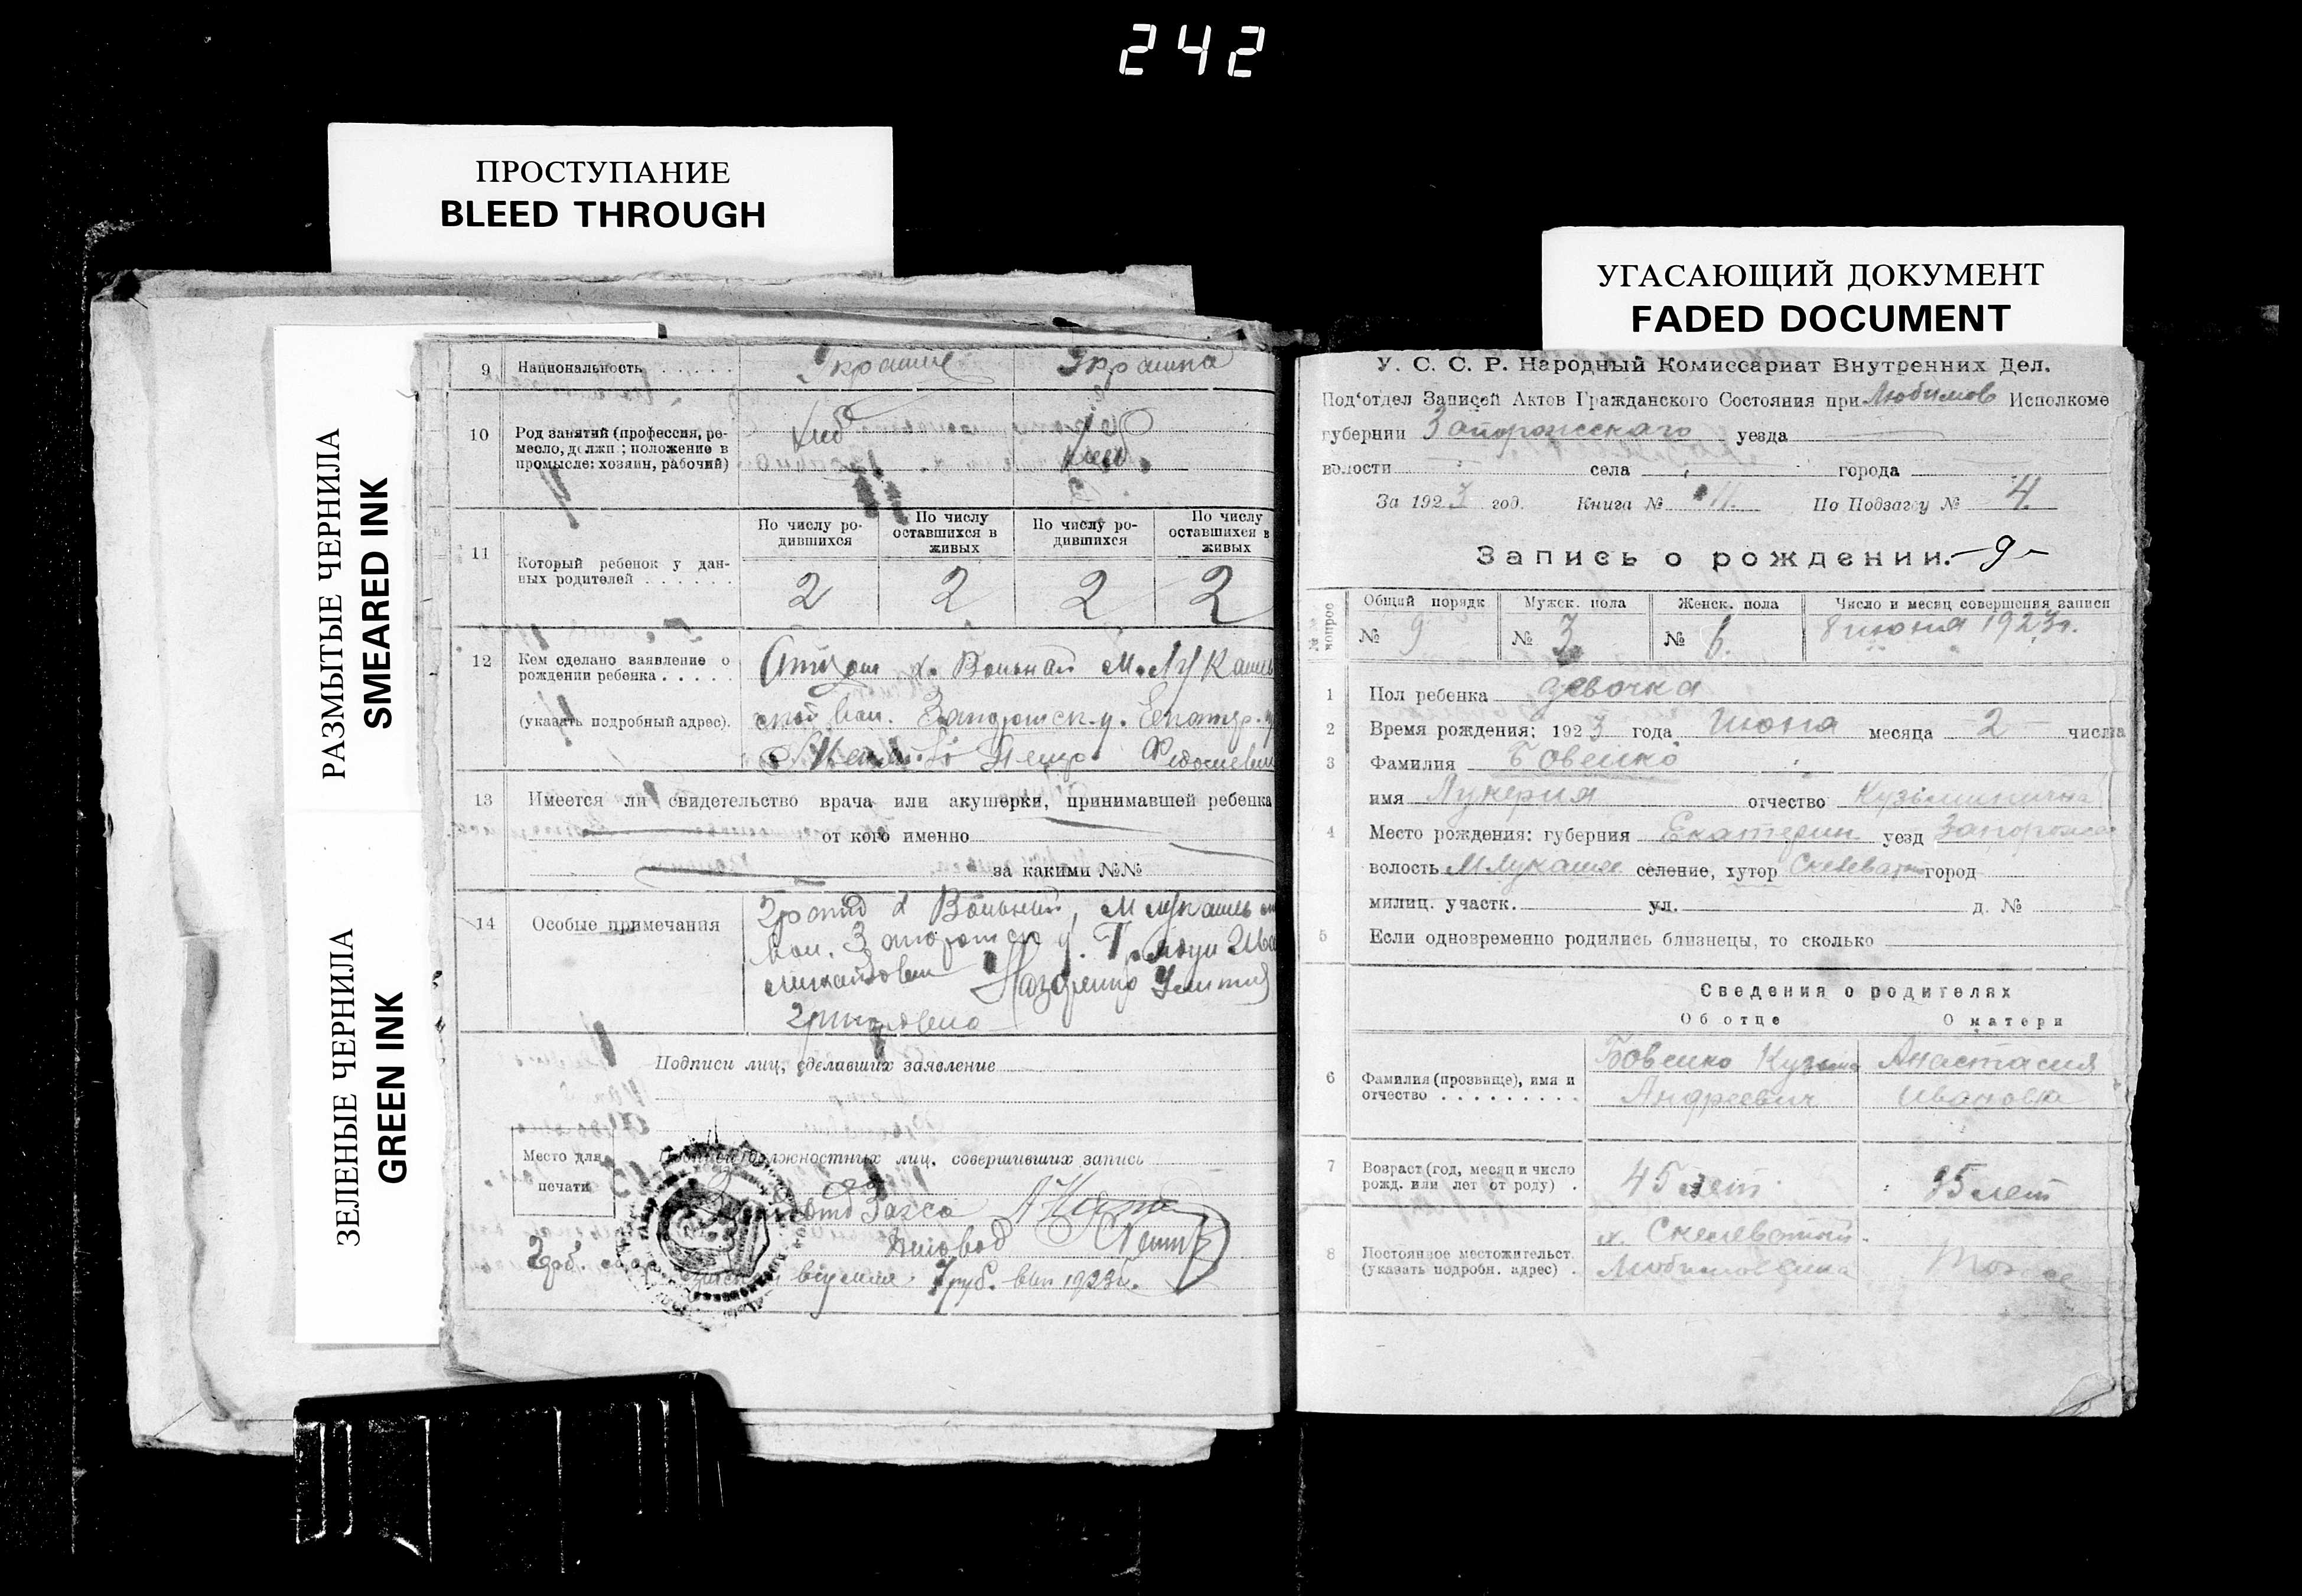 242
ПРОСТУПАНИЕ
BLEED THROUGH
УГАСАЮЩИЙ ДОКУМЕНТ
FADED DOCUMENT
РАЗМЫТЫЕ ЧЕРНИЛА
SMEARED INK
ЗЕЛЕНЫЕ ЧЕРНИЛА
GREEN INK
9 Национальность
10 Род занятий (профессия, ре-
месло, должн.; положение в
промысле: хозяин, рабочий)
Хлеб Хлеб
По числу ро-
дившихся
По числу
оставшихся в
живых
По числу ро-
дившихся
По числу
оставшихся в
живых
11 Который ребенок у дан-
ных родителей
2 2 2 2
12 Кем сделано заявление о
рождении ребенка
(указать подробный адрес).
х. Вольный М. Лукашев
ской вол. Запорожск. у. Екатер. г
Петр
13 Имеется ли свидетельство врача или акушерки, принимавшей ребенка
от кого именно
за какими №№
14 Особые примечания
Гражд х Вольный, М Лукашев
вол. Запорожско у.
Михайлович Назаренко
Григоровна
Подписи лиц, сделавших заявление
Место для
печати
должностных лиц, совершивших запись
Загса
Деловод
7 руб. 1923 г.
У. С. С. Р. Народный Комиссариат Внутренних Дел.
Под'отдел Записей Актов Гражданского Состояния при Любимов Исполкоме
губернии Запорожского уезда
волости села города
За 1923 год. Книга № 11. По Подзагсу № 4.
Запись о рождении. -9-
Общий порядк Мужск. пола Женск. пола Число и месяц совершения записи
№ 9 № 3 № 6. 8 июня 1923 г.
1 Пол ребенка девочка
2 Время рождения: 1923 года Июня месяца 2 числа
3 Фамилия Бовенко
имя Лукерия отчество Кузьминична
4 Место рождения: губерния Екатерин уезд Запорожс
волость М Лукаше селение, хутор Скелеватый город
милиц. участк. ул. д. №
5 Если одновременно родились близнецы, то сколько
Сведения о родителях
Об отце О матери
6 Фамилия (прозвище), имя и
отчество
Бовенко Кузьма
Андреевич
Анастасия
Ивановна
7 Возраст (год, месяц и число
рожд. или лет от роду)
45 лет 35 лет
8 Постоянное местожительст.
(указать подробн. адрес)
х. Скелеватый
Любимовская
Тоже